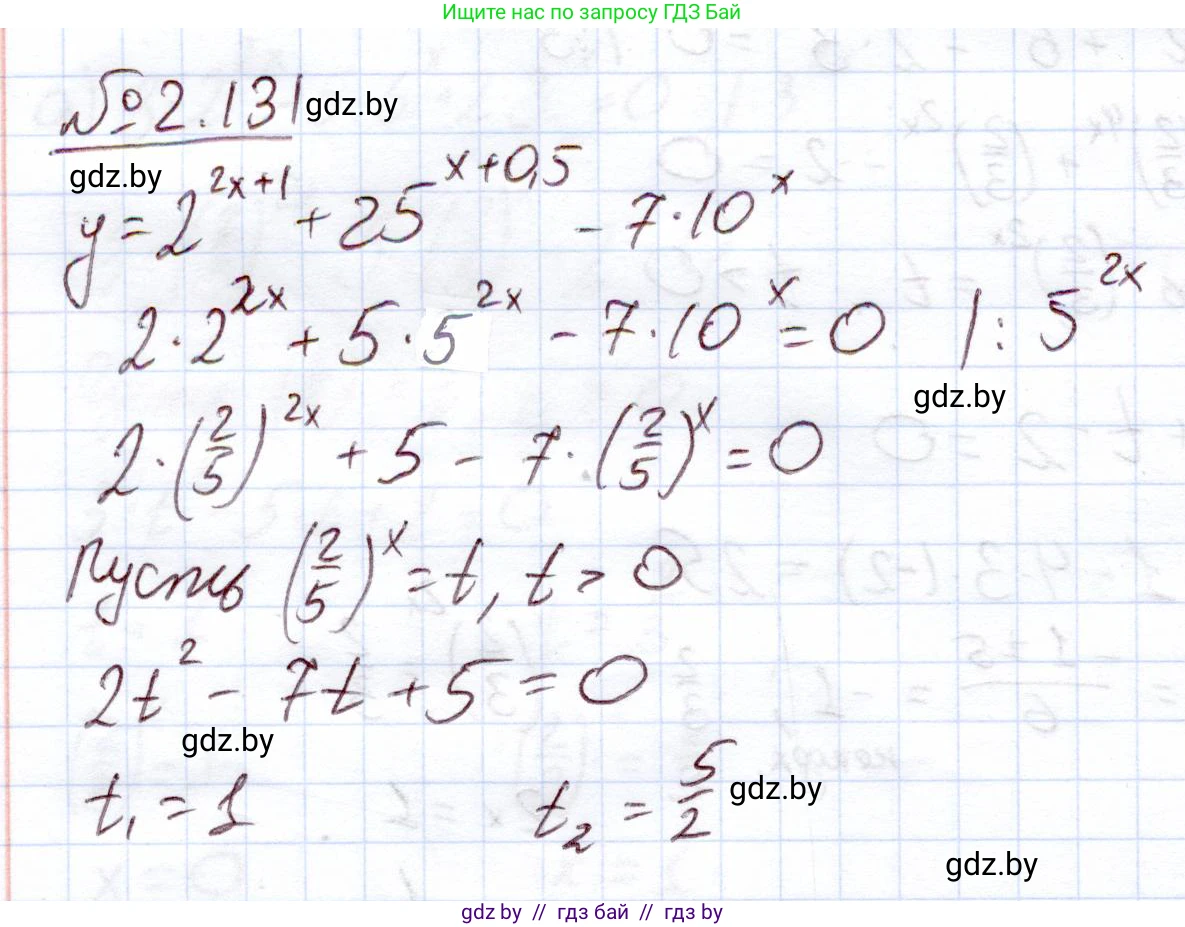 Ищите нас по запросу ГДЗ Бай
№2.131 gdz.by
gdz.by
y = 2^(2x+1) + 25^(x+0,5) - 7·10^x
2·2^(2x) + 5·5^(2x) - 7·10^x = 0 | : 5^(2x)
gdz.by
2·(2/5)^(2x) + 5 - 7·(2/5)^x = 0
Пусть (2/5)^x = t, t > 0
2t² - 7t + 5 = 0
gdz.by
t₁ = 1 t₂ = 5/2 gdz.by
gdz.by
gdz.by // гдз бай // гдз by